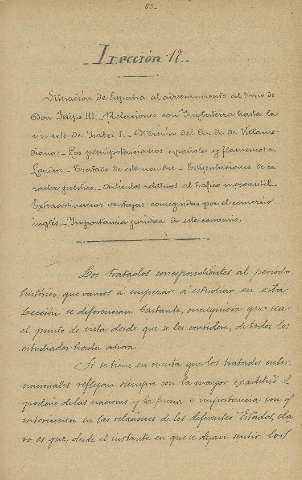 85.
Lección 12.
Situación de España al advenimiento al trono de
Don Felipe III. Relaciones con Inglaterra hasta la
muerte de Isabel I. Misión del Conde de Villame
diana. Los plenipotenciarios españoles y flamencos en
Londres. Tratado de este nombre. Estipulaciones de ca
rácter político. Artículos relativos al tráfico mercantil.
Extraordinarias ventajas conseguidas por el comercio
inglés. Importancia jurídica de este convenio.
Los tratados correspondientes al periodo
histórico, que vamos a empezar a estudiar en esta
Lección se diferencian bastante, cualquiera que sea
el punto de vista desde que se les considere, de todos los
estudiados hasta ahora.
Si se tiene en cuenta que los tratados inter-
nacionales reflejan siempre con la mayor exactitud el
poderío de las naciones y la fuerza e importancia con q'
intervienen en las relaciones de los diferentes Estados, cla
ro es que, desde el instante en que se dejan sentir los